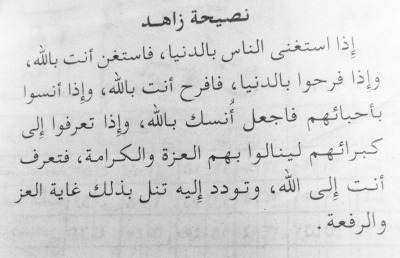 نصيحة زاهد
إذا استغنى الناس بالدنيا، فاستغن أنت بالله،
وإذا فرحوا بالدنيا، فافرح أنت بالله، وإذا أنسوا
بأحبائهم فاجعل أُنسك بالله، وإذا تعرفوا إلى
كبرائهم لينالوا بهم العزة والكرامة، فتعرف
أنت إلى الله، وتودد إليه تنل بذلك غاية العز
والرفعة.